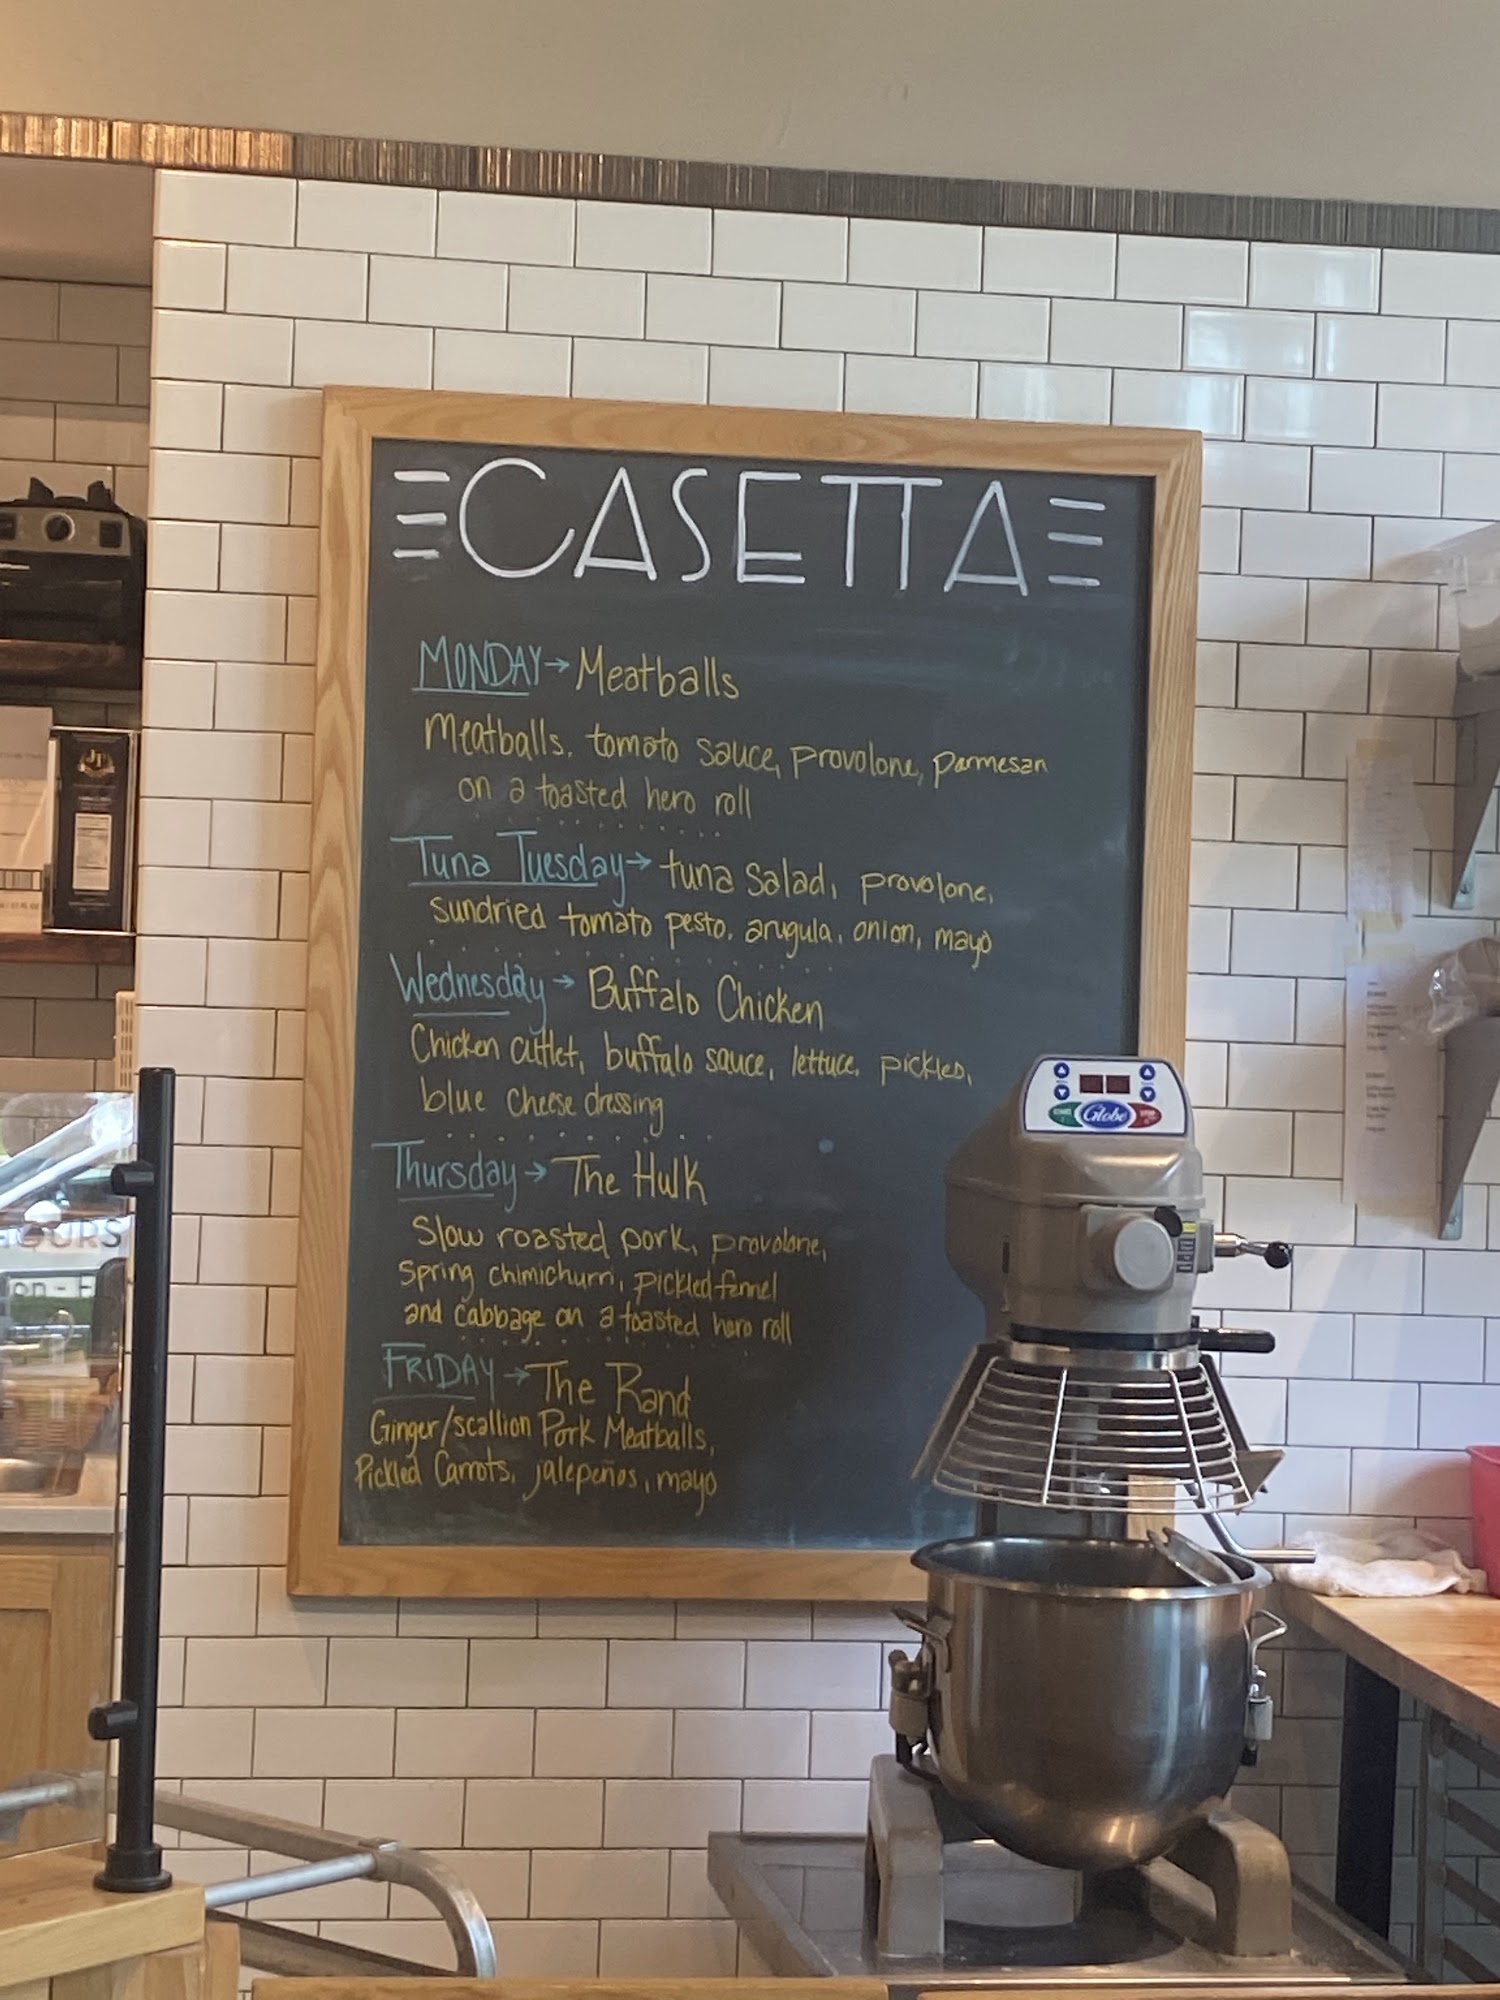 CASETTA
MONDAY → Meatballs
Meatballs, tomato sauce, provolone, parmesan
on a toasted hero roll
Tuna Tuesday → tuna salad, provolone,
sundried tomato pesto, arugula, onion, mayo
Wednesday → Buffalo Chicken
Chicken cutlet, buffalo sauce, lettuce, pickles,
blue cheese dressing
Thursday → The Hulk
Slow roasted pork, provolone,
spring chimichurri, pickled fennel
and cabbage on a toasted hero roll
FRIDAY → The Rand
Ginger/scallion Pork Meatballs,
Pickled Carrots, jalepeños, mayo
Globe
HOURS